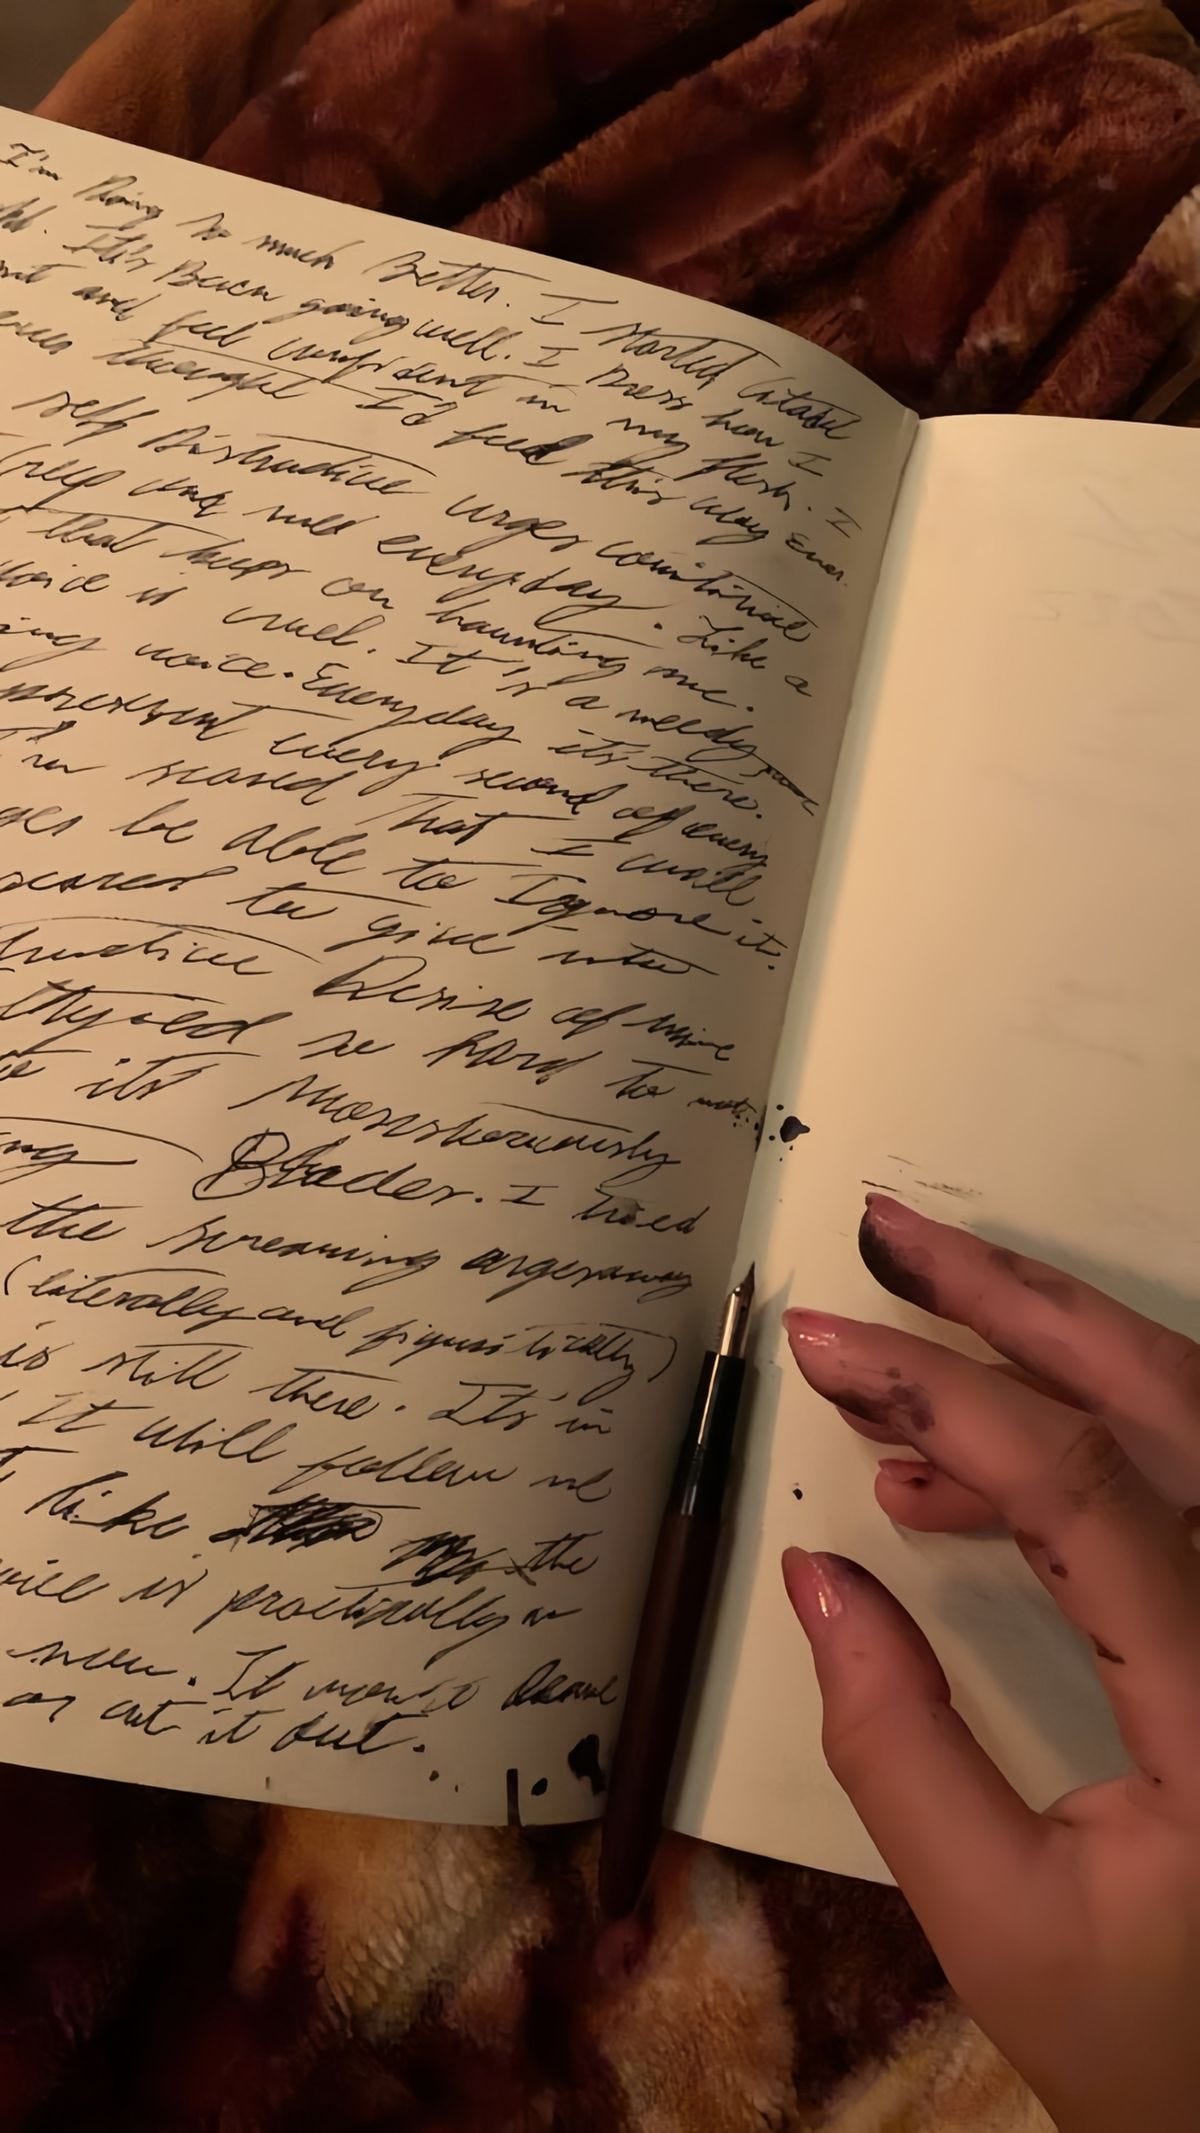 I'm Doing so much Better. I started
It's Been going well. I Dress how I
and feel confident in my flesh. I
thought I'd feel this way Ever.
self Distructive urges continue
creep and need everyday. Like a
that keeps on haunting me.
voice is cruel. It's a needy
ing voice. Everyday it's there.
present every second of every
I'm scared That I won't
be able to Ignore it.
scared to give into
tructive Desire of mine
tryied so hard to not.
it's monsterously
ing Blades. I tried
the screaming urges away
(literally and figuritically)
is still there. It's in
It will follow me
like the
voice is practically a
now. It wants to leave
or cut it out.